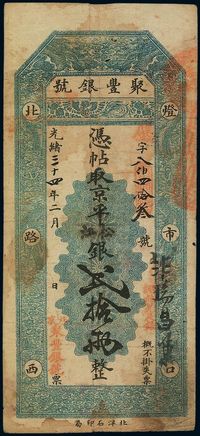 聚豐銀號
燈市口
北路西
字八伯四拾叁號
憑帖取京平松江銀貳拾兩整
光緒三十四年二月 日
概不掛失票
北洋石印局